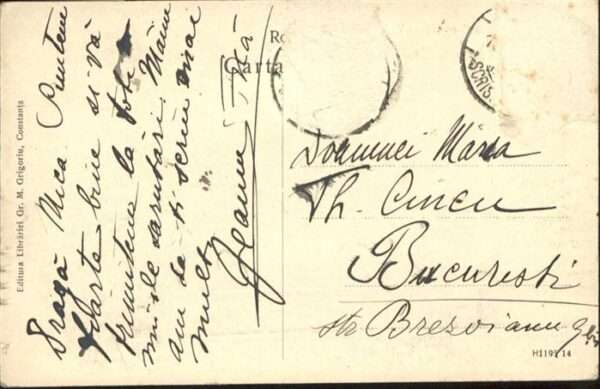 Editura Librăriei Gr. M. Grigoriu, Constanța
Dragă Mica Suntem
foarte bine și vă
trimitem la toți
mii de sărutări. Mâine
am să-ți scriu mai
mult
Jeana
Carta
SCRIS
Doamnei Maria
Th. Cincu
București
str Brezoianu
H1191 14